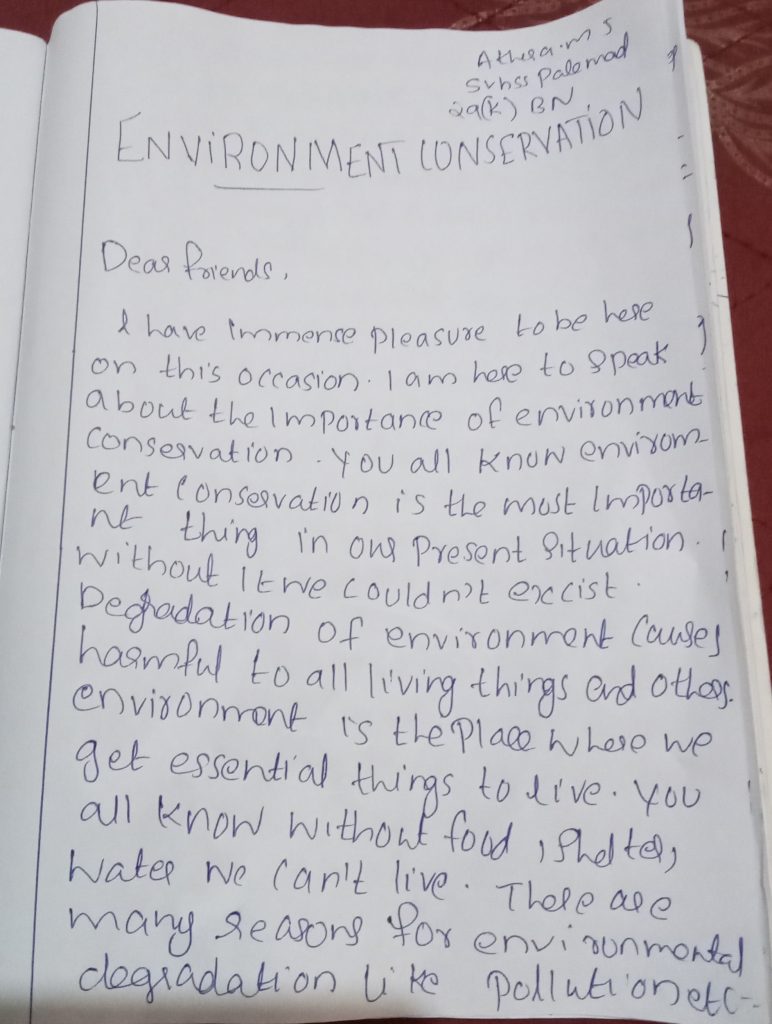 Athira.m s
Svhss Palemad
29(K) BN
ENVIRONMENT CONSERVATION
Dear friends,
I have immense pleasure to be here
on this occasion. I am here to speak
about the Importance of environment
conservation. You all know environm
ent conservation is the most Importa-
nt thing in our present situation.
without it we couldn't excist.
Degradation of environment causes
harmful to all living things and others.
environment is the place where we
get essential things to live. you
all know without food, shelter,
water we can't live. There are
many reasons for environmental
degradation like pollution etc--